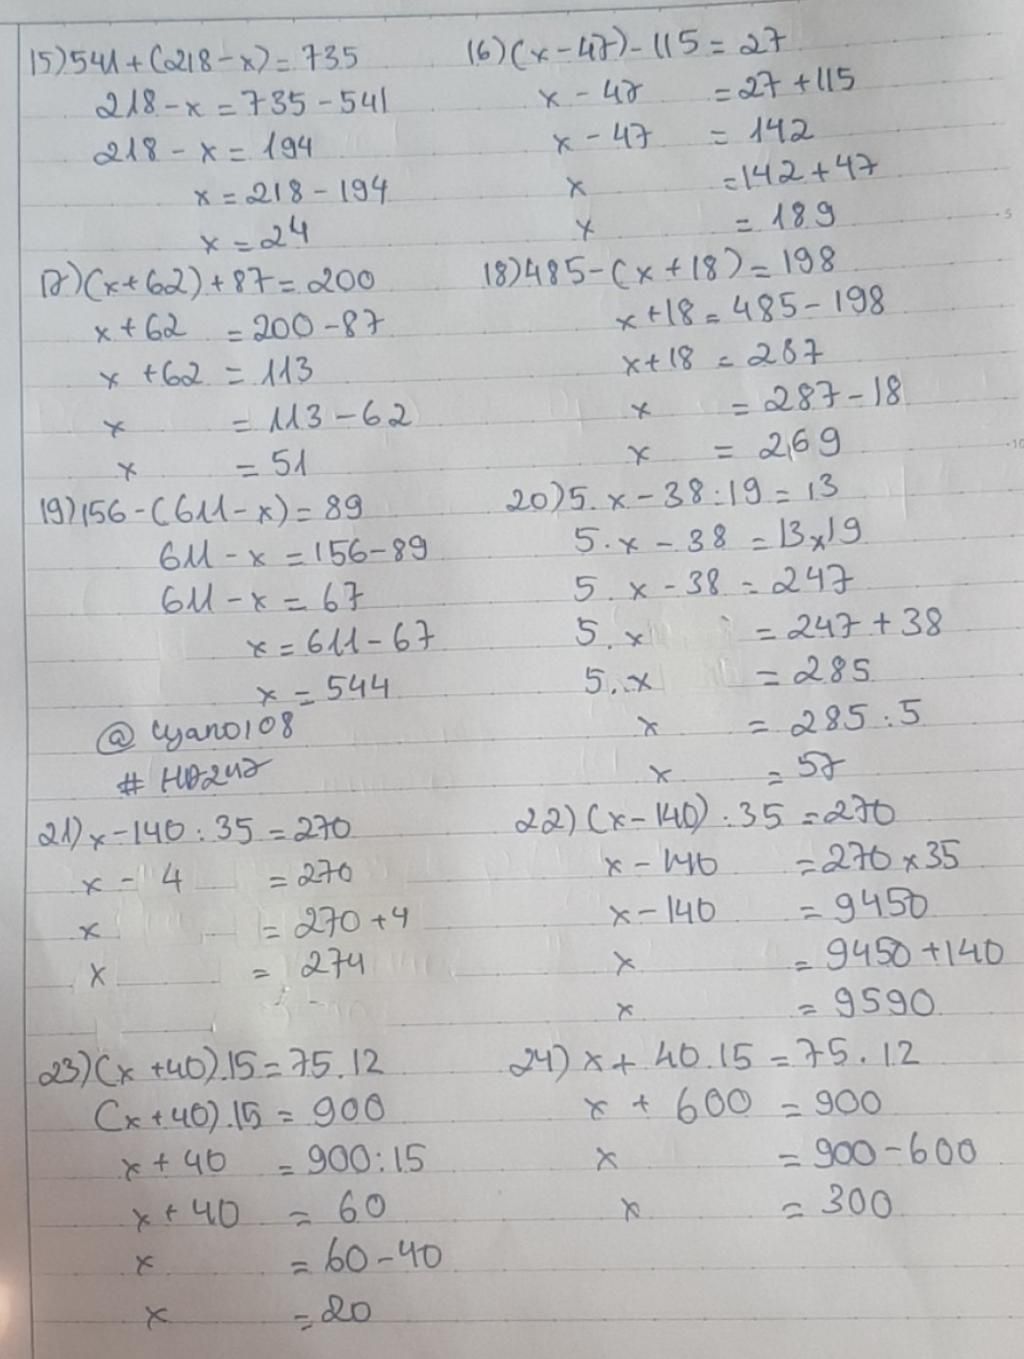 15) 541 + (218 - x) = 735
218 - x = 735 - 541
218 - x = 194
x = 218 - 194
x = 24
16) (x - 47) - 115 = 27
x - 47 = 27 + 115
x - 47 = 142
x = 142 + 47
x = 189
17) (x + 62) + 87 = 200
x + 62 = 200 - 87
x + 62 = 113
x = 113 - 62
x = 51
18) 485 - (x + 18) = 198
x + 18 = 485 - 198
x + 18 = 287
x = 287 - 18
x = 269
19) 156 - (611 - x) = 89
611 - x = 156 - 89
611 - x = 67
x = 611 - 67
x = 544
@ cyano108
# HD247
20) 5. x - 38 : 19 = 13
5. x - 38 = 13 x 19
5. x - 38 = 247
5. x = 247 + 38
5. x = 285
x = 285 : 5
x = 57
21) x - 140 : 35 = 270
x - 4 = 270
x = 270 + 4
x = 274
22) (x - 140) : 35 = 270
x - 140 = 270 x 35
x - 140 = 9450
x = 9450 + 140
x = 9590
23) (x + 40).15 = 75.12
(x + 40).15 = 900
x + 40 = 900 : 15
x + 40 = 60
x = 60 - 40
x = 20
24) x + 40.15 = 75.12
x + 600 = 900
x = 900 - 600
x = 300